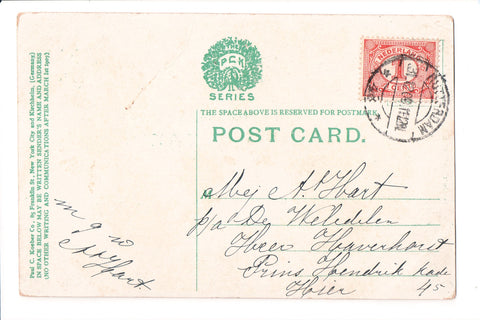 Paul C. Koeber Co., 85 Franklin St., New York City and Kirchheim, (Germany)
IN SPACE BELOW MAY BE WRITTEN SENDER'S NAME AND ADDRESS
(NO OTHER WRITING AND COMMUNICATIONS AFTER MARCH 1st 1907)
THE
P.C.K
SERIES
NEDERLAND
1
CENT
AMSTERDAM
THE SPACE ABOVE IS RESERVED FOR POSTMARK.
POST CARD.
Mej A. 't Hart
p/a De Weledelen
Heer Haverhorst
Prins Hendrik kade
45
Hier
m g w
't Hart